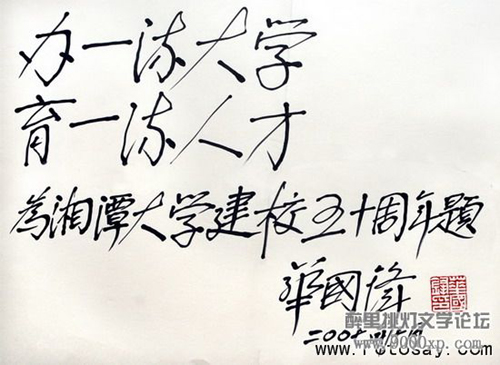 办一流大学
育一流人才
為湘潭大学建校五十周年題
華國鋒
醉里挑灯文学论坛
www.9060xp.com
www.fotosay.com